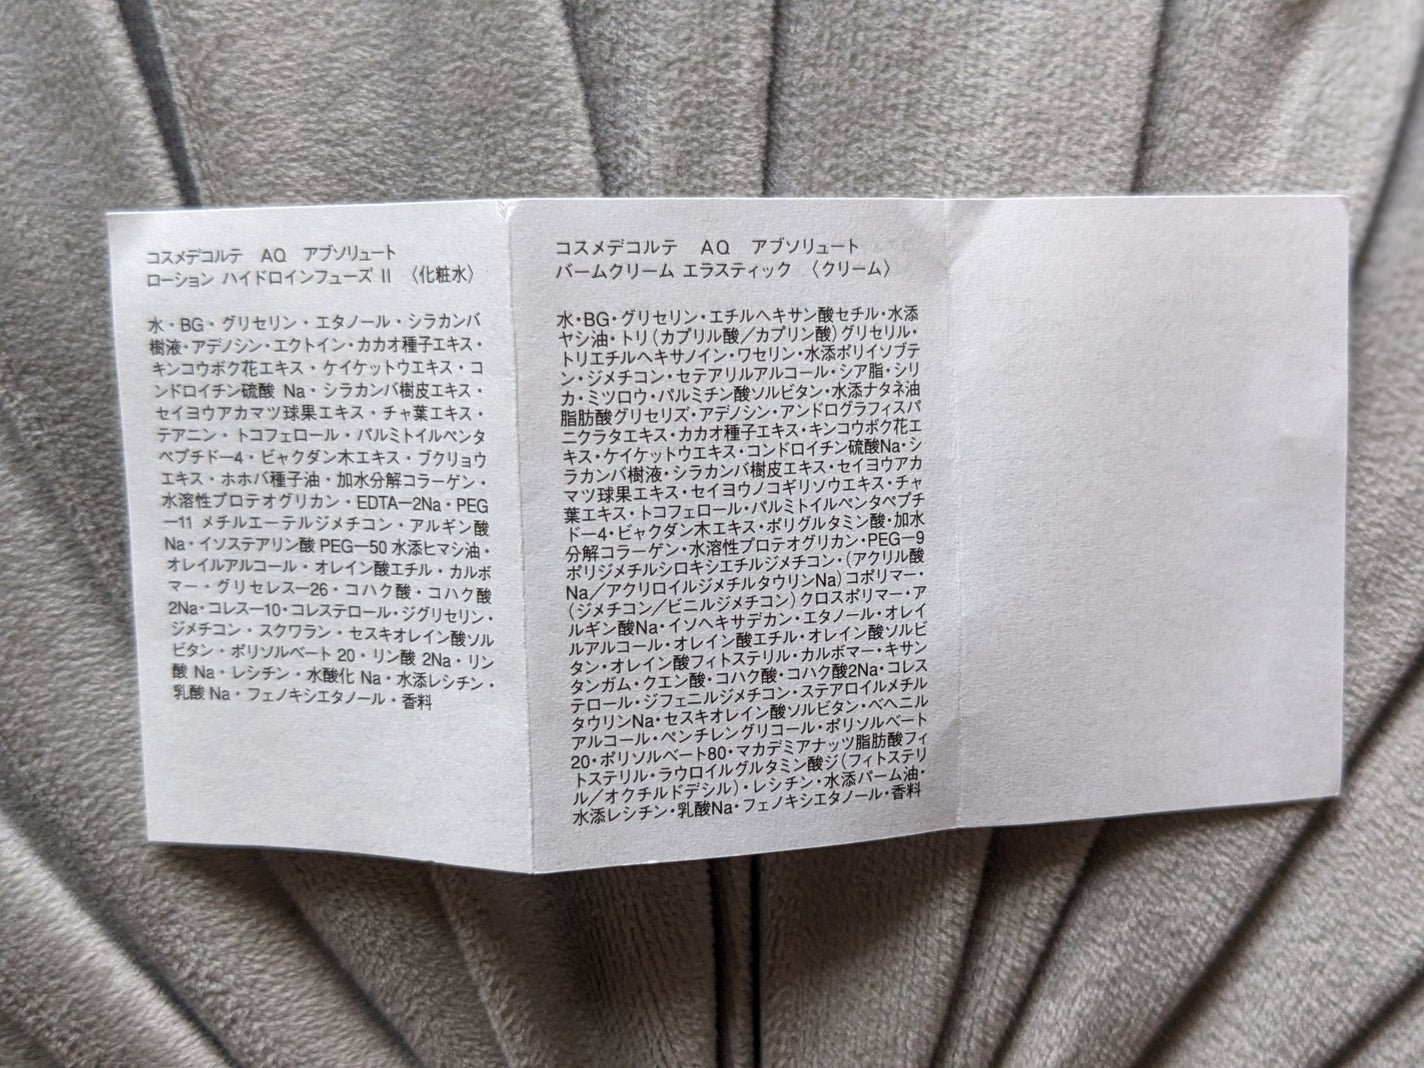 コスメデコルテ AQ アブソリュート
ローション ハイドロインフューズ II 〈化粧水〉
水・BG・グリセリン・エタノール・シラカンバ
樹液・アデノシン・エクトイン・カカオ種子エキス・
キンコウボク花エキス・ケイケットウエキス・コ
ンドロイチン硫酸 Na・シラカンバ樹皮エキス・
セイヨウアカマツ球果エキス・チャ葉エキス・
テアニン・トコフェロール・パルミトイルペンタ
ペプチド―4・ビャクダン木エキス・ブクリョウ
エキス・ホホバ種子油・加水分解コラーゲン・
水溶性プロテオグリカン・EDTA―2Na・PEG
―11 メチルエーテルジメチコン・アルギン酸
Na・イソステアリン酸 PEG―50 水添ヒマシ油・
オレイルアルコール・オレイン酸エチル・カルボ
マー・グリセレス―26・コハク酸・コハク酸
2Na・コレス―10・コレステロール・ジグリセリン・
ジメチコン・スクワラン・セスキオレイン酸ソル
ビタン・ポリソルベート 20・リン酸 2Na・リン
酸 Na・レシチン・水酸化 Na・水添レシチン・
乳酸 Na・フェノキシエタノール・香料
コスメデコルテ AQ アブソリュート
バームクリーム エラスティック 〈クリーム〉
水・BG・グリセリン・エチルヘキサン酸セチル・水添
ヤシ油・トリ（カプリル酸／カプリン酸）グリセリル・
トリエチルヘキサノイン・ワセリン・水添ポリイソブテ
ン・ジメチコン・セテアリルアルコール・シア脂・シリ
カ・ミツロウ・パルミチン酸ソルビタン・水添ナタネ油
脂肪酸グリセリズ・アデノシン・アンドログラフィスパ
ニクラタエキス・カカオ種子エキス・キンコウボク花エ
キス・ケイケットウエキス・コンドロイチン硫酸Na・シ
ラカンバ樹液・シラカンバ樹皮エキス・セイヨウアカ
マツ球果エキス・セイヨウノコギリソウエキス・チャ
葉エキス・トコフェロール・パルミトイルペンタペプチ
ド―4・ビャクダン木エキス・ポリグルタミン酸・加水
分解コラーゲン・水溶性プロテオグリカン・PEG―9
ポリジメチルシロキシエチルジメチコン・（アクリル酸
Na／アクリロイルジメチルタウリンNa）コポリマー・
（ジメチコン／ビニルジメチコン）クロスポリマー・ア
ルギン酸Na・イソヘキサデカン・エタノール・オレイ
ルアルコール・オレイン酸エチル・オレイン酸ソルビ
タン・オレイン酸フィトステリル・カルボマー・キサン
タンガム・クエン酸・コハク酸・コハク酸2Na・コレス
テロール・ジフェニルジメチコン・ステアロイルメチル
タウリンNa・セスキオレイン酸ソルビタン・ベヘニル
アルコール・ペンチレングリコール・ポリソルベート
20・ポリソルベート80・マカデミアナッツ脂肪酸フィ
トステリル・ラウロイルグルタミン酸ジ（フィトステリ
ル／オクチルドデシル）・レシチン・水添パーム油・
水添レシチン・乳酸Na・フェノキシエタノール・香料